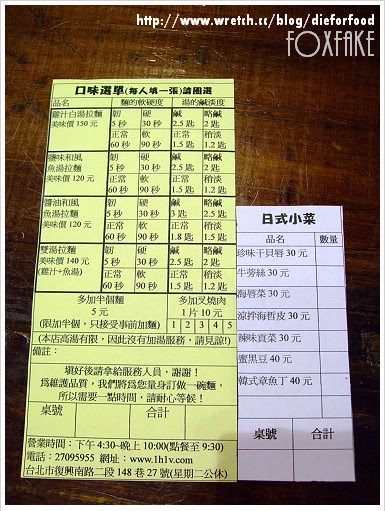 http://www.wretch.cc/blog/dieforfood
FOXFAKE
口味選單(每人填一張)請圈選
品名 麵的軟硬度 湯的鹹淡度
雞汁白湯拉麵 韌 硬 鹹 略鹹
美味價 150 元 5 秒 30 秒 2.5 匙 2 匙
正常 軟 正常 稍淡
60 秒 90 秒 1.5 匙 1.2 匙
鹽味和風 韌 硬 鹹 略鹹
魚湯拉麵 5 秒 30 秒 2.5 匙 2 匙
美味價 120 元 正常 軟 正常 稍淡
60 秒 90 秒 1.5 匙 1.2 匙
醬油和風 韌 硬 鹹 略鹹
魚湯拉麵 5 秒 30 秒 3 匙 2.5 匙
美味價 120 元 正常 軟 正常 稍淡
60 秒 90 秒 1.8 匙 1.5 匙
雙湯拉麵 韌 硬 鹹 略鹹
美味價 140 元 5 秒 30 秒 2.5 匙 2 匙
(雞汁+魚湯) 正常 軟 正常 稍淡
60 秒 90 秒 1.5 匙 1.2 匙
多加半個麵 多加叉燒肉
5 元 1 片 10 元
(限加半個，只接受事前加麵) 1 2 3 4 5
(本店高湯有限，因此沒有加湯服務，請見諒!)
備註：
填好後請拿給服務人員，謝謝！
為維護品質，我們將為您量身訂做一碗麵，
所以需要一點時間，請耐心等候！
桌號 合計
營業時間：下午 4:30~晚上 10:00(點餐至 9:30)
電話：27095955 網址：www.1h1v.com
台北市復興南路二段 148 巷 27 號(星期二公休)
日式小菜
品名 數量
珍味干貝唇 30 元
牛蒡絲 30 元
海唇菜 30 元
涼拌海哲皮 30 元
辣味貢菜 30 元
蜜黑豆 40 元
韓式章魚丁 40 元
桌號 合計